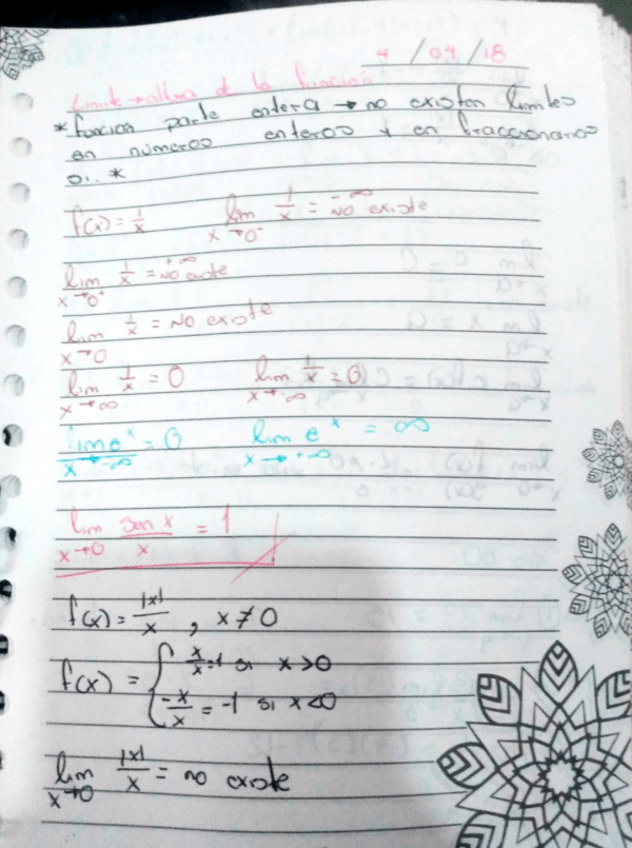 4 / 04 / 18
Limite → altura de la función
* función parte entera → no existen limites
en números enteros y en fraccionarios
si.. *
f(x) = 1/x    lim x→0⁻ 1/x = -∞ no existe
lim x→0⁺ 1/x = +∞ no existe
lim x→0 1/x = no existe
lim x→∞ 1/x = 0    lim x→-∞ 1/x = 0
lim eˣ = 0 x→-∞    lim x→+∞ eˣ = ∞
lim x→0 sen x / x = 1
f(x) = |x|/x , x ≠ 0
f(x) = { x/x = 1 si x > 0
-x/x = -1 si x < 0
lim x→0 |x|/x = no existe